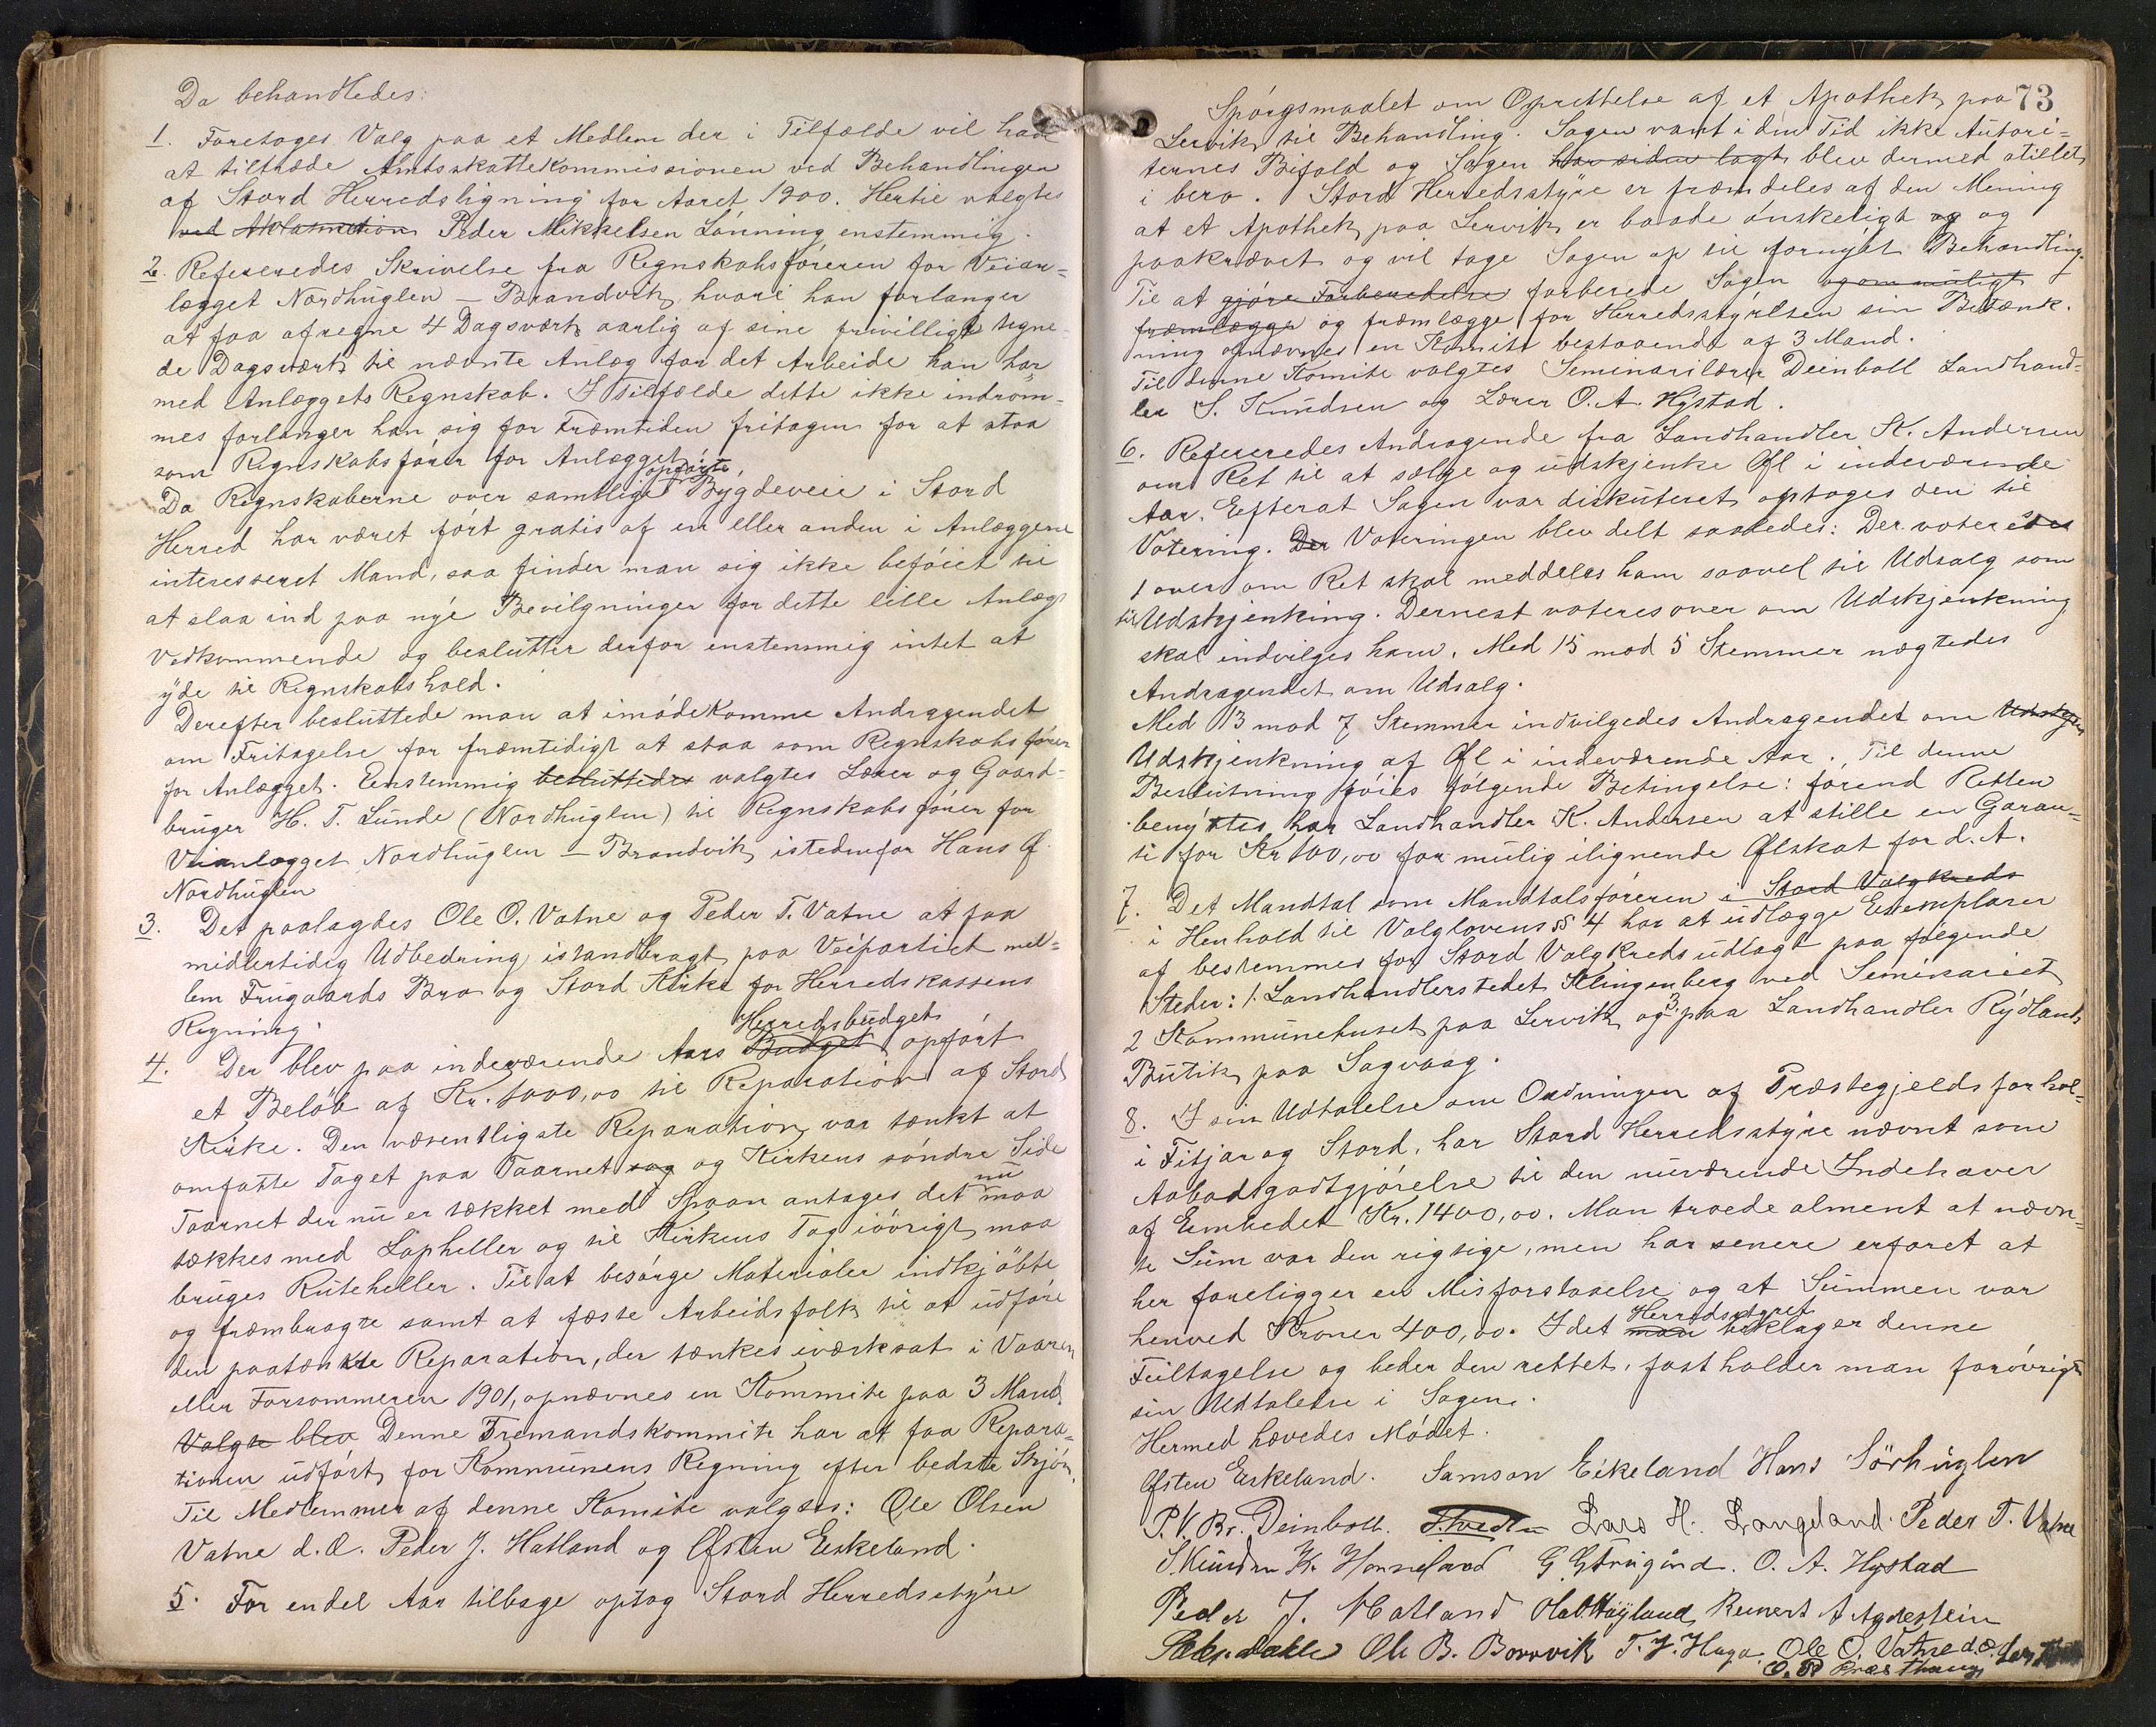 Da behandledes:
1. Foretoges Valg paa et Medlem der i Tilfælde vil have
at tiltræde Amtsskattekommissionen ved Behandlingen
af Stord Herredsligning for Aaret 1900. Hertil valgtes
ved Aklamation Peder Mikkelsen Lønning enstemmig.
2. Refereredes Skrivelse fra Regnskabsføreren for Veian-
lægget Nordhuglen – Brandvik, hvori han forlanger
at faa afregne 4 Dagsværk aarlig af sine frivilligt tegne-
de Dagsværk til nævnte Anlæg for det Arbeide han har
med Anlæggets Regnskab. I Tilfælde dette ikke indrøm-
mes forlanger han sig for Fræmtiden fritagen for at staa
som Regnskabsfører for Anlægget.
Da Regnskaberne over samtlige opførte Bygdeveie i Stord
Herred har været ført gratis af en eller anden i Anlæggene
interesseret Mand, saa finder man sig ikke beføiet til
at slaa ind paa nye Bevilgninger for dette lille Anlægs
Vedkommende og beslutter derfor enstemmig intet at
yde til Regnskabshold.
Derefter besluttede man at imødekomme Andragendet
om Fritagelse for fræmtidigt at staa som Regnskabsfører
for Anlægget. Enstemmig besluttedes valgtes Lærer og Gaard-
bruger H. T. Lunde (Nordhuglen) til Regnskabsfører for
Veianlægget Nordhuglen – Brandvik istedenfor Hans Ø.
Nordhuglen
3. Det paalagdes Ole O. Vatne og Peder T. Vatne at faa
midlertidig Udbedring istandbragt paa Veipartiet mel-
lem Frugaards Bro og Stord Kirke for Herredskassens
Regning.
4. Der blev paa indeværende Aars Budget Herredsbudget opført
et Beløb af Kr. 1000,00 til Reparation af Stord
Kirke. Den væsentligste Reparation var tænkt at
omfatte Taget paa Taarnet og og Kirkens søndre Side
Taarnet der nu er tækket med Spaan antages det nu maa
tækkes med Lapheller og til Kirkens Tag iøvrigt maa
bruges Ruteheller. Til at besørge Materialer indkjøbte
og fræmbragte samt at fæste Arbeidsfolk til at udføre
den paatænkte Reparation, der tænkes iværksat i Vaaren
eller Forsommeren 1901, opnævnes en Kommite paa 3 Mand.
Valgte blev Denne Tremandskommite har at faa Repara-
tionen udført for Kommunens Regning efter bedste Skjøn.
Til Medlemmer af denne Komite valgtes: Ole Olsen
Vatne d.Æ. Peder J. Hatland og Østen Eskeland.
5. For endel Aar tilbage optog Stord Herredsstyre
73
Spørgsmaalet om Oprettelse af et Apothek paa
Lervik til Behandling. Sagen vant i din Tid ikke Autori-
ternes Bifald og Sagen har siden lagt blev dermed stillet
i bero. Stord Herredsstyre er fræmdeles af den Mening
at et Apothek paa Lervik er baade ønskeligt og og
paakrævet og vil tage Sagen op til fornyet Behandling.
Til at gjøre Forberedelse forberede Sagen og om muligt
fræmlægge og fræmlægge for Herredsstyrelsen sin Betænk-
ning opnævnes en Komite bestaaende af 3 Mand.
Til denne Komite valgtes Seminarilærer Deinboll Landhand-
ler S. Knudsen og Lærer O. A. Hystad.
6. Refereredes Andragende fra Landhandler K. Andersen
om Ret til at sælge og udskjenke Øl i indeværende
Aar. Efterat Sagen var diskuteret optoges den til
Votering. Der Voteringen blev delt saaledes: Der voteredes
1 over om Ret skal meddeles ham saavel til Udsalg som
til Udskjenkning. Dernest voteres over om Udskjenkning
skal indvilges ham. Med 15 mod 5 Stemmer nægtedes
Andragendet om Udsalg.
Med 13 mod 7 Stemmer indvilgedes Andragendet om Udskjen
Udskjenkning af Øl i indeværende Aar. Til denne
Beslutning føies følgende Betingelse: førend Retten
benyttes har Landhandler K. Andersen at stille en Garan-
ti for Kr 100,00 for mulig ilignende Ølskat for d. A.
7. Det Mandtal som Mandtalsføreren i Stord Valgkreds
i Henhold til Valglovens § 4 har at udlægge Exemplarer
af bestemmes for Stord Valgkreds udlagt paa følgende
Steder: 1. Landhandlerstedet Klingenberg ved Seminariet
2 Kommunehuset paa Lervik og 3. paa Landhandler Rydlands
Butik paa Sagvaag.
8. I sin Udtalelse om Ordningen af Præstegjeldsforhol-
i Fitjar og Stord, har Stord Herredsstyre nævnt som
Aabodsgodtgjørelse til den nuværende Indehaver
af Eembedet Kr. 1400,00. Man troede alment at nævn-
te Sum var den rigtige, men har senere erfaret at
her foreligger en Misforstaaelse og at Summen var
henved Kroner 400,00. Idet man Herredsstyret beklager denne
Feiltagelse og beder den rettet, fastholder man forøvrigt
sin Udtalelse i Sagen.
Hermed hævedes Mødet.
Østen Eskeland. Samson Eikeland Hans Sörhuglen
P. V. Br. Deinboll. Lars H. Langeland. Peder T. Vatne
S. Knudsen K. Horneland G. G. Frugård. O. A. Hystad
Peder J. Hatland Ola O. Høyland Reinert A Agdestein
Ole B. Borrvik T. J. Haga. Ole O. Vatne d.Æ.
O. P. Præsthaug